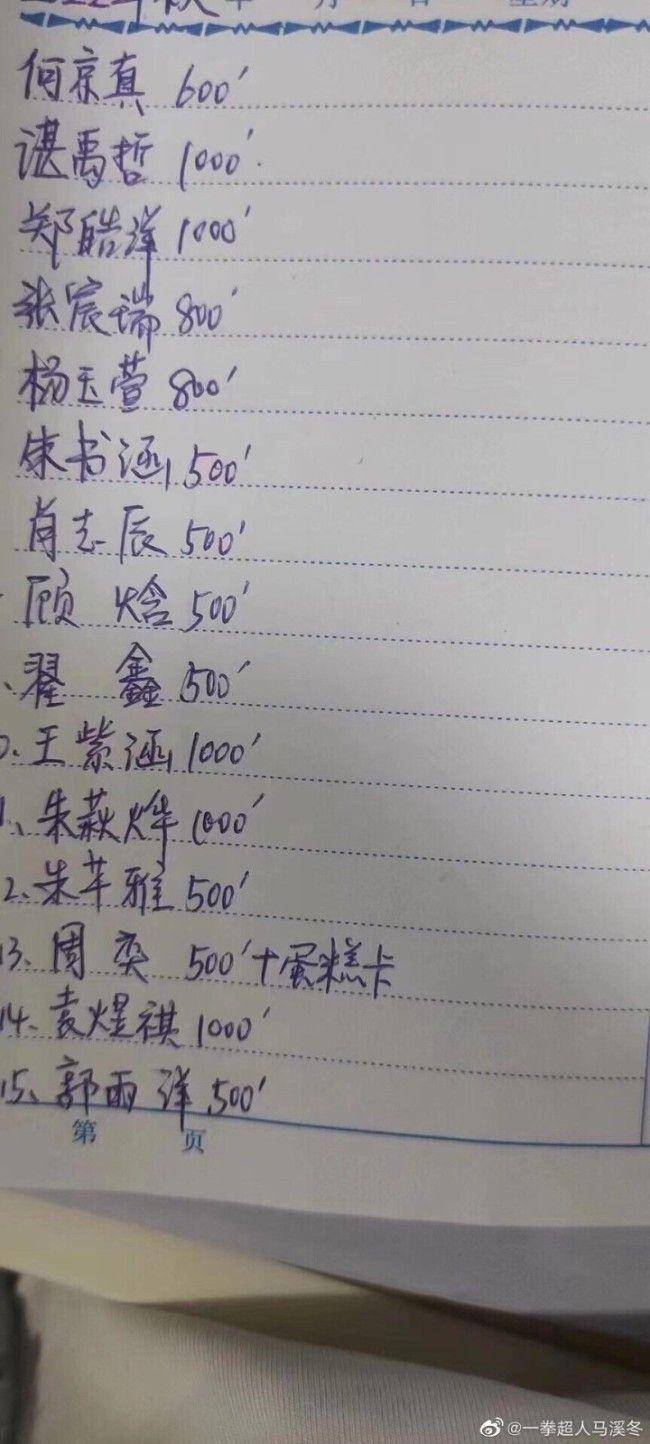 2022年秋 年 月 日 星期
何京真 600'
谌禹哲 1000'
郑皓洋 1000'
张宸瑞 800'
杨玉萱 800'
朱书涵 500'
肖志辰 500'
顾 焓 500'
翟 鑫 500'
0、王紫涵 1000'
1、朱萩烨 1000'
2、朱芊雅 500'
13、周奕 500'+蛋糕卡
14、袁煜祺 1000'
15、郭雨洋 500'
第 页
@一拳超人马溪冬